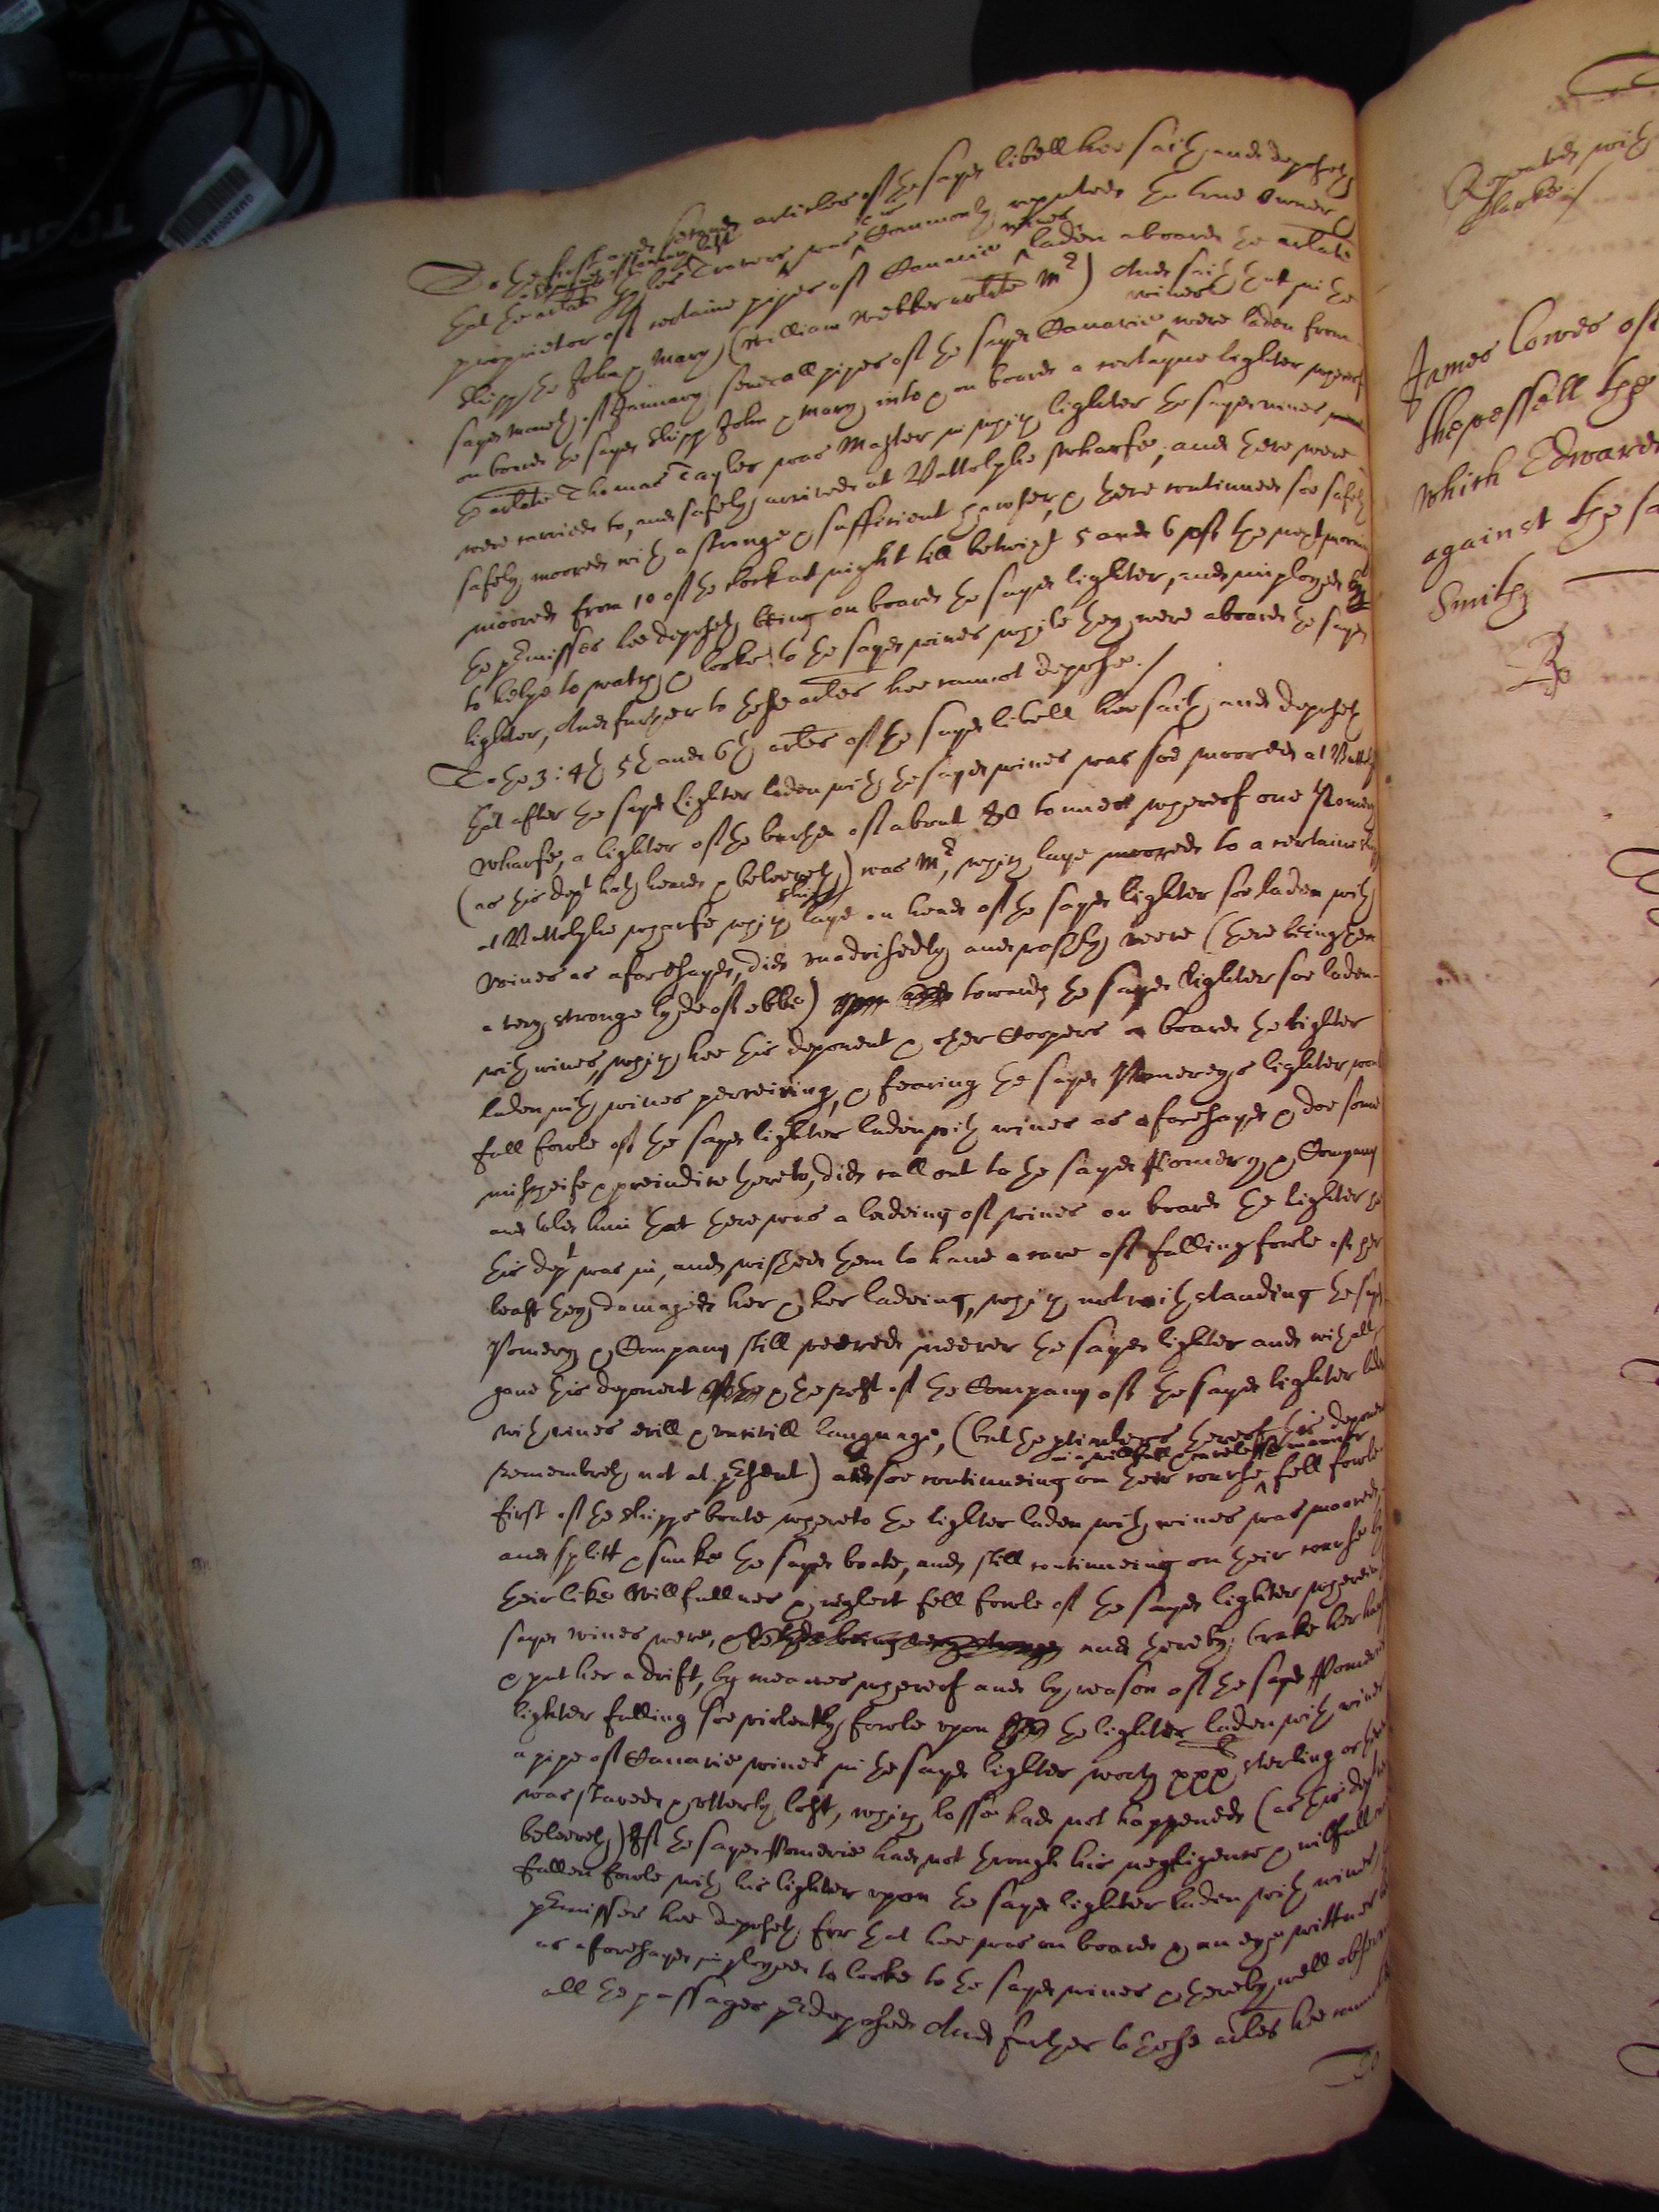 To the first and second articles of the sayd libell hee saith and deposeth
that the arlate Thomas Travers was commonly reputed the true Owner &
proprietor of certaine pipes of Canarie wines laden aboard the arlate
shipp the John & Mary (William Webber arlate Mr) And saith that in the
sayd moneth of January severall pipes of the sayd Canarie wines were laden from
on board the sayd shipp John & Mary into & on board a certayne lighter whereof
the arlate Thomas Tayler was Master in which lighter the sayd wines
were carried to, and safely arrived at Buttolphe wharfe, and there were
safely moored with a stronge & sufficient hawser, & there continued soe safely
moored from 10 of the clock at night till betwixt 5 and 6 of the next morning
the premisses hee deposeth being on board the sayd lighter, and imployed
to helpe to watch & looke to the sayd wines while they were aboard the sayd
lighter, And further to these arles hee cannot depose./
To the 3: 4th 5th and 6th arles of the sayd libell hee saith and deposeth
that after the sayd lighter laden with the sayd wines was soe moored at Buttolph
wharfe, a lighter of the burthen of about 80 tonnes whereof one Pomery
(as this dept hath heard & beleeveth) was Mr, which laye moored to a certaine shipp
at Buttolphe wharfe which shipp laye on head of the sayd lighter soe laden with
wines as aforesayd, did unadvisedly and rashly veere (there being then
a very stronge tyde of ebbe) towards the sayd lighter soe laden
with wines, which hee this deponent & other Coopers on board the lighter
laden with wines perceiving, & fearing the sayd Pomereys lighter would
fall foule of the sayd lighter laden with wines as aforesayd & doe some
mischeife & preiudice thereto, did call out to the sayd Pomery & Company
and told him that there was a ladeing of wines on board the lighter
this dept was in, and wished them to have a care of falling foule of her
least they damaged her & her ladeing, which notwithstanding the sayd
Pomery & Company still veered neerer the sayd lighter and withall
gave this deponent & the rest of the Company of the sayd lighter laden
with wines evill & uncivill language, (but the particulers thereof this deponent
remembreth not at present) and soe continueing on their course in a willfull & carelesse manner fell foule
first of the shipps boate whereto the lighter laden with wines was moored,
and splitt & sunke the sayd boate, and still continueing on their course by
their like willfullnes & neglect fell foule of the sayd lighter wherein
sayd wines were, & the tyde being very stronge and thereby brake her
& put her a drift, by meanes whereof and by reason of the sayd Pomereys
lighter falling soe violently foule upon the lighter laden with wines
a pipe of Canarie wines in the sayd lighter worth xxx li sterling
was staved & utterly lost, which losse had not happened (as this dept
beleeveth) If the sayd Pomerie had not through his negligence & willfull
fallen foule with his lighter upon the sayd lighter laden with wines
premisses hee deposeth for that hee was on board & an eye wittnes
as aforesayd imployed to looke to the sayd wines & thereby well observed
all the passages predeposed And further to these arles hee cannot
To
Repeated with
Clarke/
James Lowes of
the vessell the
which Edward
against the sa
Smith